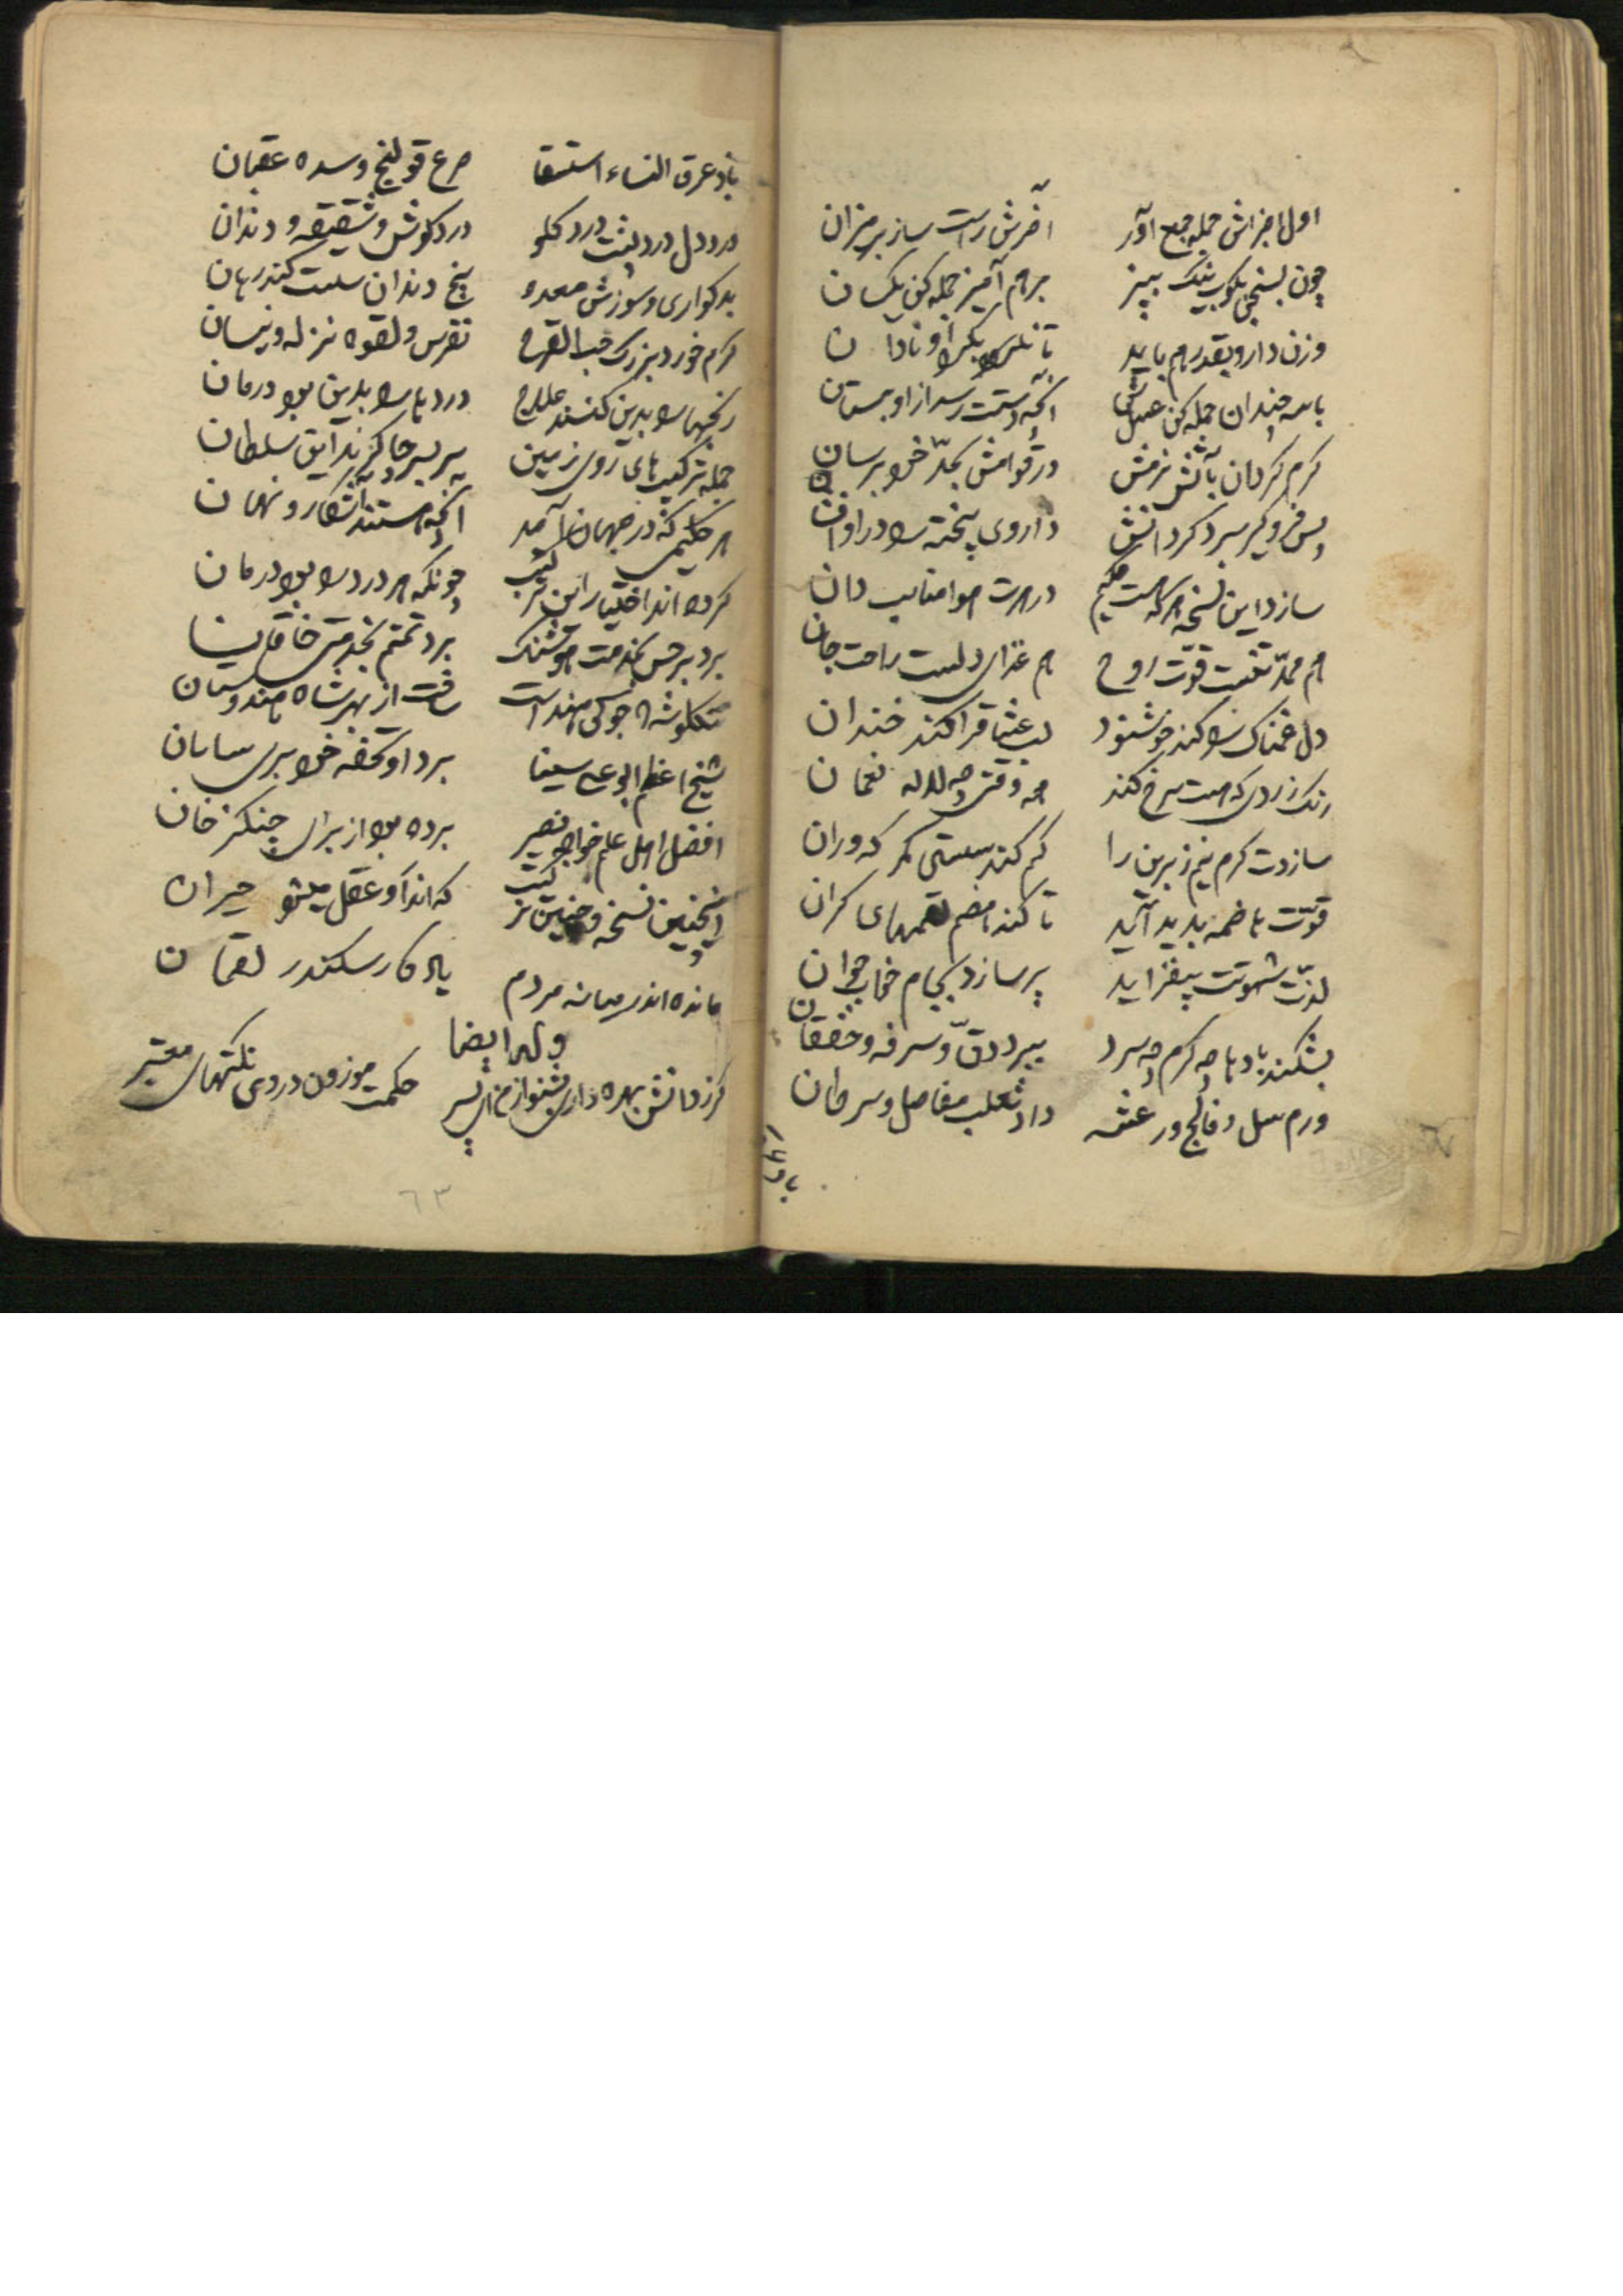 اول اجزاش جمله جمع آور آخرش راست ساز بر میزان
چون بسنجی بکوب نیک ببیز برهم آمیز جمله کن یکسان
وزن دارو بقدر هم باید تا نکیرد
با سه چندان جمله کن عسلش آنچه دستت رسد ازو بستان
کرم کردان بآتش نرمش در قوامش بحد خود برسان
پس فرو کیر سرد کردانش داروی پخته را در او افشان
سازد این نسخه هر که هست حکیم درهرت هوا مناسب دان
هم ممد تنست قوت روح هم غذای دلست راحت جان
دل غمناک را کند خوشنود لب عشاق را کند خندان
رنک زردی که هست سرخ کند همه وقتی چه لاله نعمان
سازدت کرم نیم زیرین را کم کند سستی کمر که و ران
قوت هاضمه پدید آید تا کند هضم لقمهای کران
لذت شهوتت بیفزاید پر سازد بجام خاب جوان
بشکند بادها چه کرم چه سرد ببرد دق و سرفه و خفقان
ورم سل و فالج و رعشه داء ثعلب مفاصل و سرطان
باد عرق النساء استسقا صرع قولنج و سده عقبان
درد دل درد پشت درد کلو درد کوش و شقیقه و دندان
بد کواری و سوزش معده بیخ دندان سست کند رهان
کرم خورد بزرک حب القرح نقرس و لقوه نزله و نسیان
رنجها را بدین کنند علاج دردها را بدین بود درمان
جمله ترکیب های روی زمین سر بسر چاکرند این سلطان
هر حکیمی که در جهان آمد آنچه هستند آشکار و نهان
کرده اند اختیار این ترکیب چونکه هر درد را بود درمان
برد برجس بخدمت هوشنک برد تمتم بخدمت خاقان
تنکلوشه جوکی هند است ساخت از بهر شاه هندوستان
شیخ اعظم ابو علی سینا برد او تحفه خود بری سامان
افضل اهل علم خواجه نصیر برده بود از برای چنکز خان
اینچنین نسخه و چنین ترکیب که اندرو عقل میشو حیران
مانده اندر میانه مردم یادکار سکندر لقمان
وله ایضا
کرز دانش بهره داری بشنو از من ای پسر حکمت موزون در وی نکتهای معتبر
٦٣